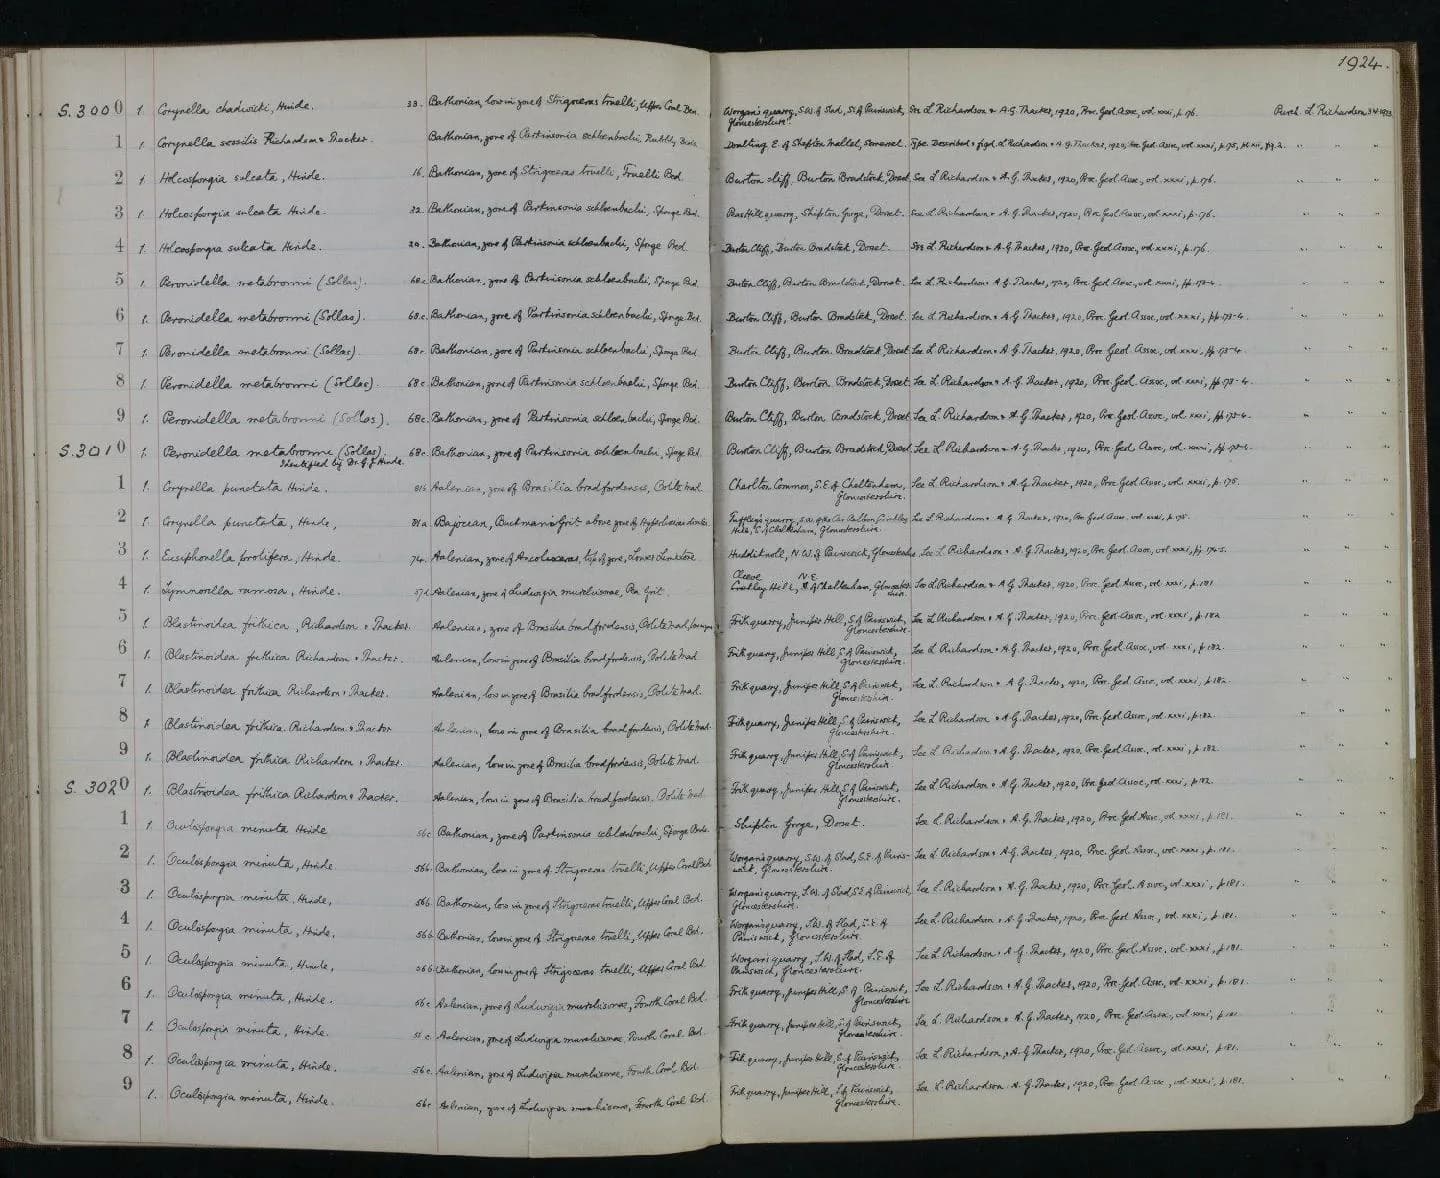 1924.
S.3000 1. Corynella chadwicki, Hinde. 33. Bathonian, low in zone of Strigoceras truelli, Upper Coral Bed. Worgan's quarry, S.W. of Slad, S. of Painswick, Gloucestershire. See L. Richardson & A.G. Thacker, 1920, Proc. Geol. Assoc., vol. xxxi, p. 176. Purch. L. Richardson
1 1. Corynella sessilis Richardson & Thacker. Bathonian, zone of Parkinsonia schloenbachi, Rubbly Beds. Doulting E. of Shepton Mallet, Somerset. Type. Described & figd. L. Richardson & A.G. Thacker, 1920, Proc. Geol. Assoc., vol. xxxi, p. 175, " " "
2 1. Holcospongia sulcata, Hinde. 16. Bathonian, zone of Strigoceras truelli, Truelli Bed. Burton Cliff, Burton Bradstock, Dorset. See L. Richardson & A.G. Thacker, 1920, Proc. Geol. Assoc., vol. xxxi, p. 176. " " "
3 1. Holcospongia sulcata Hinde. 22. Bathonian, zone of Parkinsonia schloenbachi, Sponge Bed. quarry, Shipton Gorge, Dorset. See L. Richardson & A.G. Thacker, 1920, Proc. Geol. Assoc., vol. xxxi, p. 176. " " "
4 1. Holcospongia sulcata Hinde. 20. Bathonian, zone of Parkinsonia schloenbachi, Sponge Bed. Burton Cliff, Burton Bradstock, Dorset. See L. Richardson & A.G. Thacker, 1920, Proc. Geol. Assoc., vol. xxxi, p. 176. " " "
5 1. Peronidella metabronni (Sollas). 68c. Bathonian, zone of Parkinsonia schloenbachi, Sponge Bed. Burton Cliff, Burton Bradstock, Dorset. See L. Richardson & A.G. Thacker, 1920, Proc. Geol. Assoc., vol. xxxi, pp. 173-4. " " "
6 1. Peronidella metabronni (Sollas). 68c. Bathonian, zone of Parkinsonia schloenbachi, Sponge Bed. Burton Cliff, Burton Bradstock, Dorset. See L. Richardson & A.G. Thacker, 1920, Proc. Geol. Assoc., vol. xxxi, pp. 173-4. " " "
7 1. Peronidella metabronni (Sollas). 68c. Bathonian, zone of Parkinsonia schloenbachi, Sponge Bed. Burton Cliff, Burton Bradstock, Dorset. See L. Richardson & A.G. Thacker, 1920, Proc. Geol. Assoc., vol. xxxi, pp. 173-4. " " "
8 1. Peronidella metabronni (Sollas). 68c. Bathonian, zone of Parkinsonia schloenbachi, Sponge Bed. Burton Cliff, Burton Bradstock, Dorset. See L. Richardson & A.G. Thacker, 1920, Proc. Geol. Assoc., vol. xxxi, pp. 173-4. " " "
9 1. Peronidella metabronni (Sollas). 68c. Bathonian, zone of Parkinsonia schloenbachi, Sponge Bed. Burton Cliff, Burton Bradstock, Dorset. See L. Richardson & A.G. Thacker, 1920, Proc. Geol. Assoc., vol. xxxi, pp. 173-4. " " "
S.3010 1. Peronidella metabronni (Sollas). 68c. Bathonian, zone of Parkinsonia schloenbachi, Sponge Bed. Burton Cliff, Burton Bradstock, Dorset. See L. Richardson & A.G. Thacker, 1920, Proc. Geol. Assoc., vol. xxxi, pp. 173-4. " " "
Identified by Dr. G.J. Hinde.
1 1. Corynella punctata Hinde. 81b Aalenian, zone of Brasilia bradfordensis, Oolite Marl. Charlton Common, S.E. of Cheltenham, Gloucestershire. See L. Richardson & A.G. Thacker, 1920, Proc. Geol. Assoc., vol. xxxi, p. 175. " " "
2 1. Corynella punctata, Hinde, 81a Bajocian, Buckmani Grit above zone of Tuffley's quarry, Hill, S. of Cheltenham, Gloucestershire. See L. Richardson & A.G. Thacker, 1920, Proc. Geol. Assoc. vol. xxxi, p. 175. " " "
3 1. Eusiphonella prolifera, Hinde. 74. Aalenian, zone of Ancolioceras, top of zone, Lower Limestone. Huddinknoll, N.W. of Painswick, Gloucestershire. See L. Richardson & A.G. Thacker, 1920, Proc. Geol. Assoc., vol. xxxi, " " "
4 1. Lymnorella ramosa, Hinde. 57d Aalenian, zone of Ludwigia murchisonae, Pea Grit. Cleeve Hill, N.E. of Cheltenham, Gloucestershire. See L. Richardson & A.G. Thacker, 1920, Proc. Geol. Assoc., vol. xxxi, p. 181. " " "
5 1. Blastinoidea frithica, Richardson & Thacker. Aalenian, zone of Brasilia bradfordensis, Oolite Marl, Frith quarry, Juniper Hill, S. of Painswick, Gloucestershire. See L. Richardson & A.G. Thacker, 1920, Proc. Geol. Assoc., vol. xxxi, p. 182. " " "
6 1. Blastinoidea frithica Richardson & Thacker. Aalenian, low in zone of Brasilia bradfordensis, Oolite Marl. Frith quarry, Juniper Hill, S. of Painswick, Gloucestershire. See L. Richardson & A.G. Thacker, 1920, Proc. Geol. Assoc., vol. xxxi, p. 182. " " "
7 1. Blastinoidea frithica Richardson & Thacker. Aalenian, low in zone of Brasilia bradfordensis, Oolite Marl. Frith quarry, Juniper Hill, S. of Painswick, Gloucestershire. See L. Richardson & A.G. Thacker, 1920, Proc. Geol. Assoc., vol. xxxi, p. 182. " " "
8 1. Blastinoidea frithica Richardson & Thacker Aalenian, low in zone of Brasilia bradfordensis, Oolite Marl. Frith quarry, Juniper Hill, S. of Painswick, Gloucestershire. See L. Richardson & A.G. Thacker, 1920, Proc. Geol. Assoc., vol. xxxi, p. 182. " " "
9 1. Blastinoidea frithica Richardson & Thacker. Aalenian, low in zone of Brasilia bradfordensis, Oolite Marl. Frith quarry, Juniper Hill, S. of Painswick, Gloucestershire. See L. Richardson & A.G. Thacker, 1920, Proc. Geol. Assoc., vol. xxxi, p. 182. " " "
S.3020 1. Blastinoidea frithica Richardson & Thacker. Aalenian, low in zone of Brasilia bradfordensis. Oolite Marl. Frith quarry, Juniper Hill, S. of Painswick, Gloucestershire. See L. Richardson & A.G. Thacker, 1920, Proc. Geol. Assoc., vol. xxxi, p. 182. " " "
1 1. Oculospongia minuta Hinde 56c Bathonian, zone of Parkinsonia schloenbachi, Sponge Beds. Shipton Gorge, Dorset. See L. Richardson & A.G. Thacker, 1920, Proc. Geol. Assoc., vol. xxxi, p. 181. " " "
2 1. Oculospongia minuta, Hinde 56b. Bathonian, low in zone of Strigoceras truelli, Upper Coral Bed. Worgan's quarry, S.W. of Slad, S.E. of Painswick, Gloucestershire. See L. Richardson & A.G. Thacker, 1920, Proc. Geol. Assoc., vol. xxxi, p. 181. " " "
3 1. Oculospongia minuta, Hinde, 56b Bathonian, low in zone of Strigoceras truelli, Upper Coral Bed. Worgan's quarry, S.W. of Slad, S.E. of Painswick, Gloucestershire. See L. Richardson & A.G. Thacker, 1920, Proc. Geol. Assoc., vol. xxxi, p. 181. " " "
4 1. Oculospongia minuta, Hinde. 56b Bathonian, low in zone of Strigoceras truelli, Upper Coral Bed. Worgan's quarry, S.W. of Slad, S.E. of Painswick, Gloucestershire. See L. Richardson & A.G. Thacker, 1920, Proc. Geol. Assoc., vol. xxxi, p. 181. " " "
5 1. Oculospongia minuta, Hinde, 56b Bathonian, low in zone of Strigoceras truelli, Upper Coral Bed. Worgan's quarry, S.W. of Slad, S.E. of Painswick, Gloucestershire. See L. Richardson & A.G. Thacker, 1920, Proc. Geol. Assoc. vol. xxxi, p. 181. " " "
6 1. Oculospongia minuta, Hinde. 56c Aalenian, zone of Ludwigia murchisonae, Fourth Coral Bed. Frith quarry, Juniper Hill, S. of Painswick, Gloucestershire. See L. Richardson & A.G. Thacker, 1920, Proc. Geol. Assoc. vol. xxxi, p. 181. " " "
7 1. Oculospongia minuta, Hinde. 56c. Aalenian, zone of Ludwigia murchisonae, Fourth Coral Bed. Frith quarry, Juniper Hill, S. of Painswick, Gloucestershire. See L. Richardson & A.G. Thacker, 1920, Proc. Geol. Assoc., vol. xxxi, p. 181 " " "
8 1. Oculospongia minuta, Hinde. 56c. Aalenian, zone of Ludwigia murchisonae, Fourth Coral Bed. Frith quarry, Juniper Hill, S. of Painswick, Gloucestershire. See L. Richardson & A.G. Thacker, 1920, Proc. Geol. Assoc., vol. xxxi, p. 181. " " "
9 1. Oculospongia minuta, Hinde. 56c Aalenian, zone of Ludwigia murchisonae, Fourth Coral Bed. Frith quarry, Juniper Hill, S. of Painswick, Gloucestershire. See L. Richardson & A.G. Thacker, 1920, Proc. Geol. Assoc., vol. xxxi, p. 181. " " "